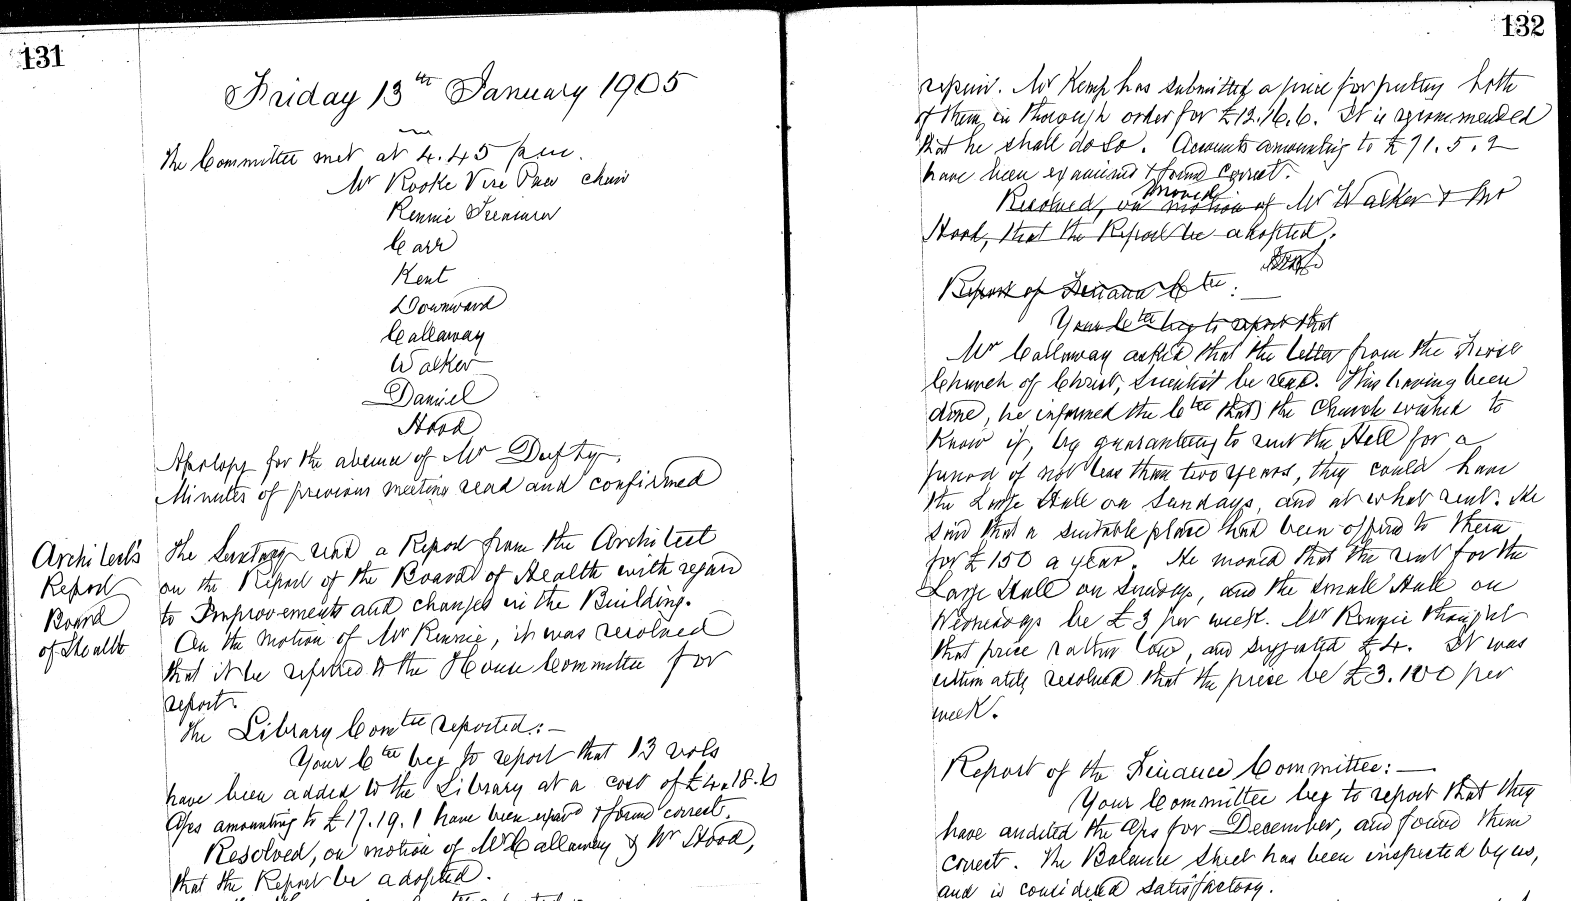 131
Friday 13th January 1905
The Committee met at 4.45 p.m.
Mr Rooke Vice Pres chair
Rennie Treasurer
Carr
Kent
Downward
Callaway
Walker
Daniel
Hood
Apology for the absence of Mr Dufty.
Minutes of previous meeting read and confirmed
Architect's
Report
Board
of Health
The Secretary read a Report from the Architect
on the Report of the Board of Health with regard
to Improvements and changes in the Building.
On the motion of Mr Rennie, it was resolved
that it be referred to the House Committee for
report.
The Library Comtee reported:—
Your Ctee beg to report that 13 vols
have been added to the Library at a cost of £4.18.6
A/cs amounting to £17.19.1 have been examd & found correct.
Resolved, on motion of Mr Callaway & Mr Hood,
that the Report be adopted.
132
repair. Mr Kemp has submitted a price for putting both
of them in thorough order for £12.16.6. It is recommended
that he shall do so. Accounts amounting to £71.5.2
have been examined & found correct.
Resolved, on motion of Mr Walker & Mr
Hood, that the Report be adopted.
Report of Finance Ctee:—
Your Ctee beg to report that
Mr Callaway asked that the letter from the First
Church of Christ, Scientist be read. This having been
done, he informed the Ctee that the Church wished to
know if, by guaranteeing to rent the Hall for a
period of not less than two years, they could have
the Large Hall on Sundays, and at what rent. He
said that a suitable place had been offered to them
for £150 a year. He moved that the rent for the
Large Hall on Sundays, and the small Hall on
Wednesdays be £3 per week. Mr Rennie thought
that price rather low, and suggested £4. It was
ultimately resolved that the price be £3.10.0 per
week.
Report of the Finance Committee:—
Your Committee beg to report that they
have audited the A/cs for December, and found them
correct. The Balance Sheet has been inspected by us,
and is considered satisfactory.